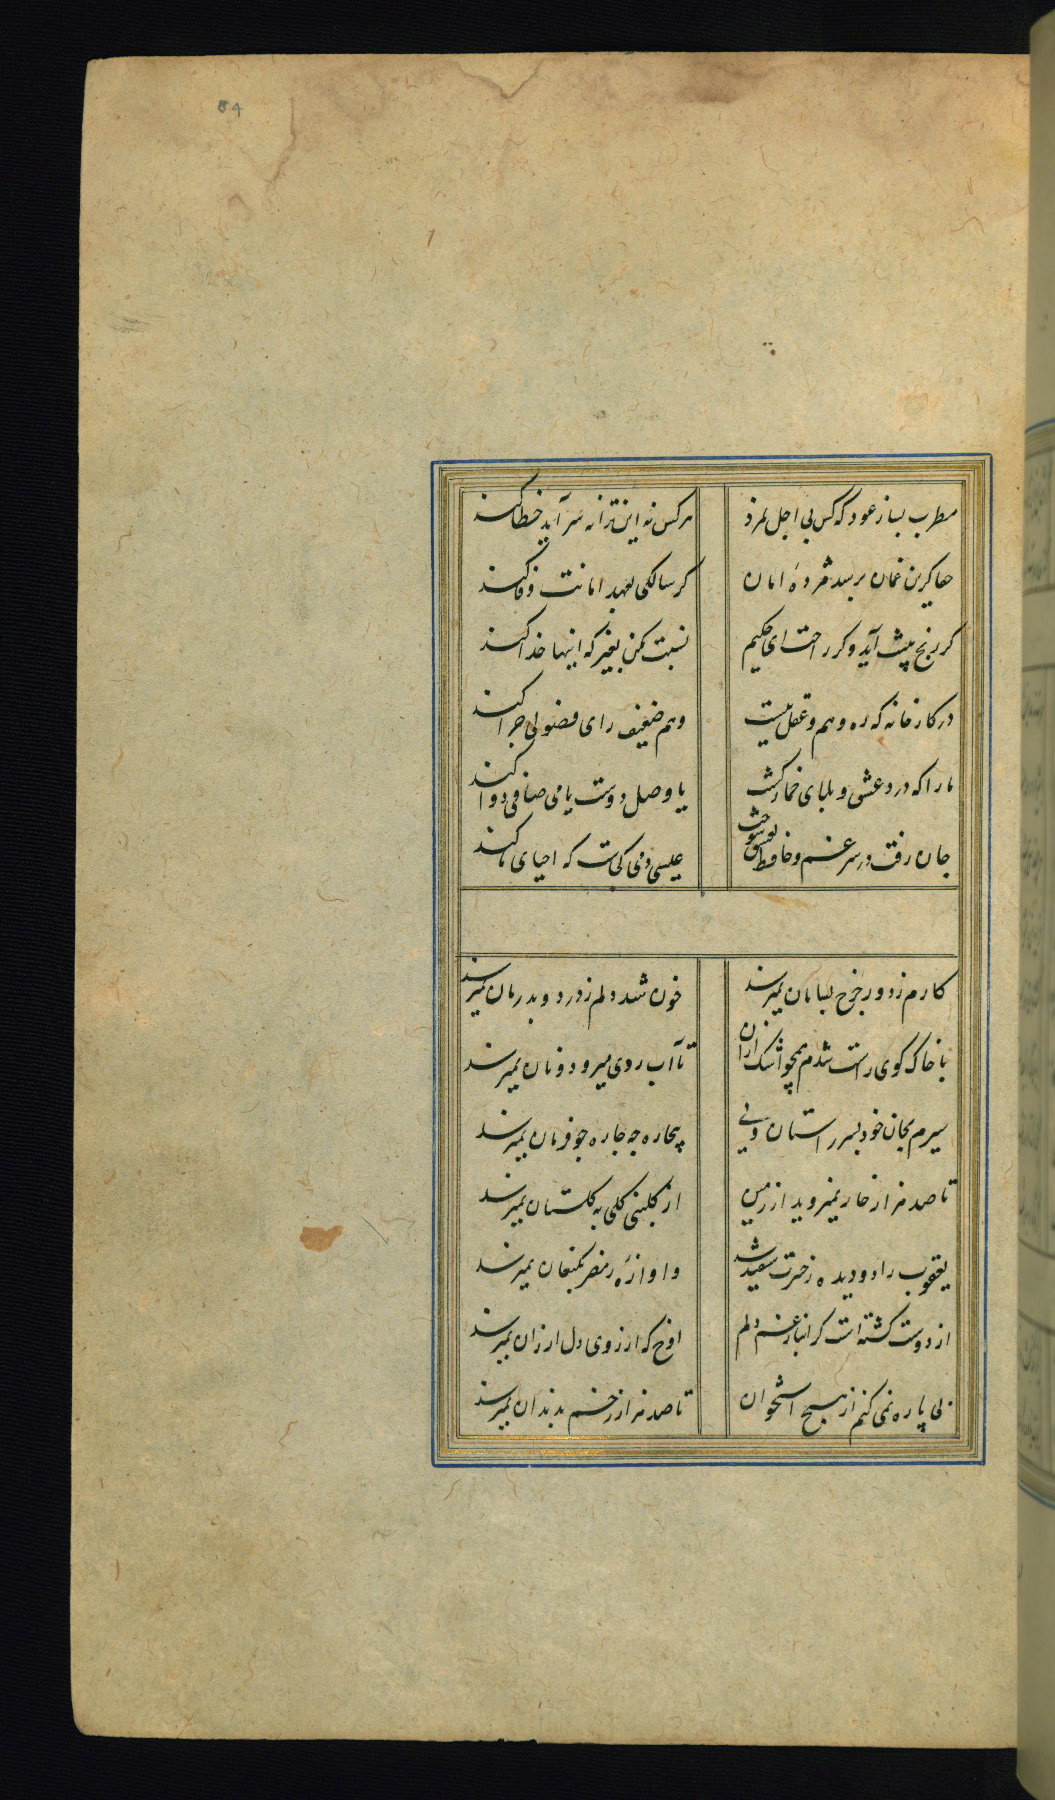 84
مطرب بساز عود که کس بی اجل نمرد
هرکس نه این ترانه سر آید خطا کند
حقا کزین غمان برسد مژده امان
گر سالکی بعهد امانت وفا کند
گر رنج پیش آید و گر راحت ای حکیم
نسبت مکن بغیر که اینها خدا کند
در کارخانه که ره وهم و عقل نیست
وهم ضعیف رای فضولی چرا کند
ما را که درد عشق و بلای خمار کشت
یا وصل دوست یا می صافی دوا کند
جان رفت در سر غم و حافظ بعشق سوخت
عیسی دمی کجاست که احیای ما کند
کارم ز دور چرخ بسامان نمیرسد
خون شد دلم ز درد و بدرمان نمیرسد
با خاک کوی راست شدم همچو اشک
تا آب روی میرود و نان نمیرسد
سیرم بجان خود بسر راستان ولی
بیچاره چه چاره چو فرمان نمیرسد
تا صد هزار خار نمیروید از زمین
از گلبنی گلی به گلستان نمیرسد
یعقوب را دو دیده ز حسرت سفید شد
و اوازه ز مصر بکنعان نمیرسد
از دوست گشته است گرانبار غم دلم
اوخ که ارزوی دل ارزان نمیرسد
بی پاره نمی کنم از هیچ استخوان
تا صد هزار زخم بدندان نمیرسد